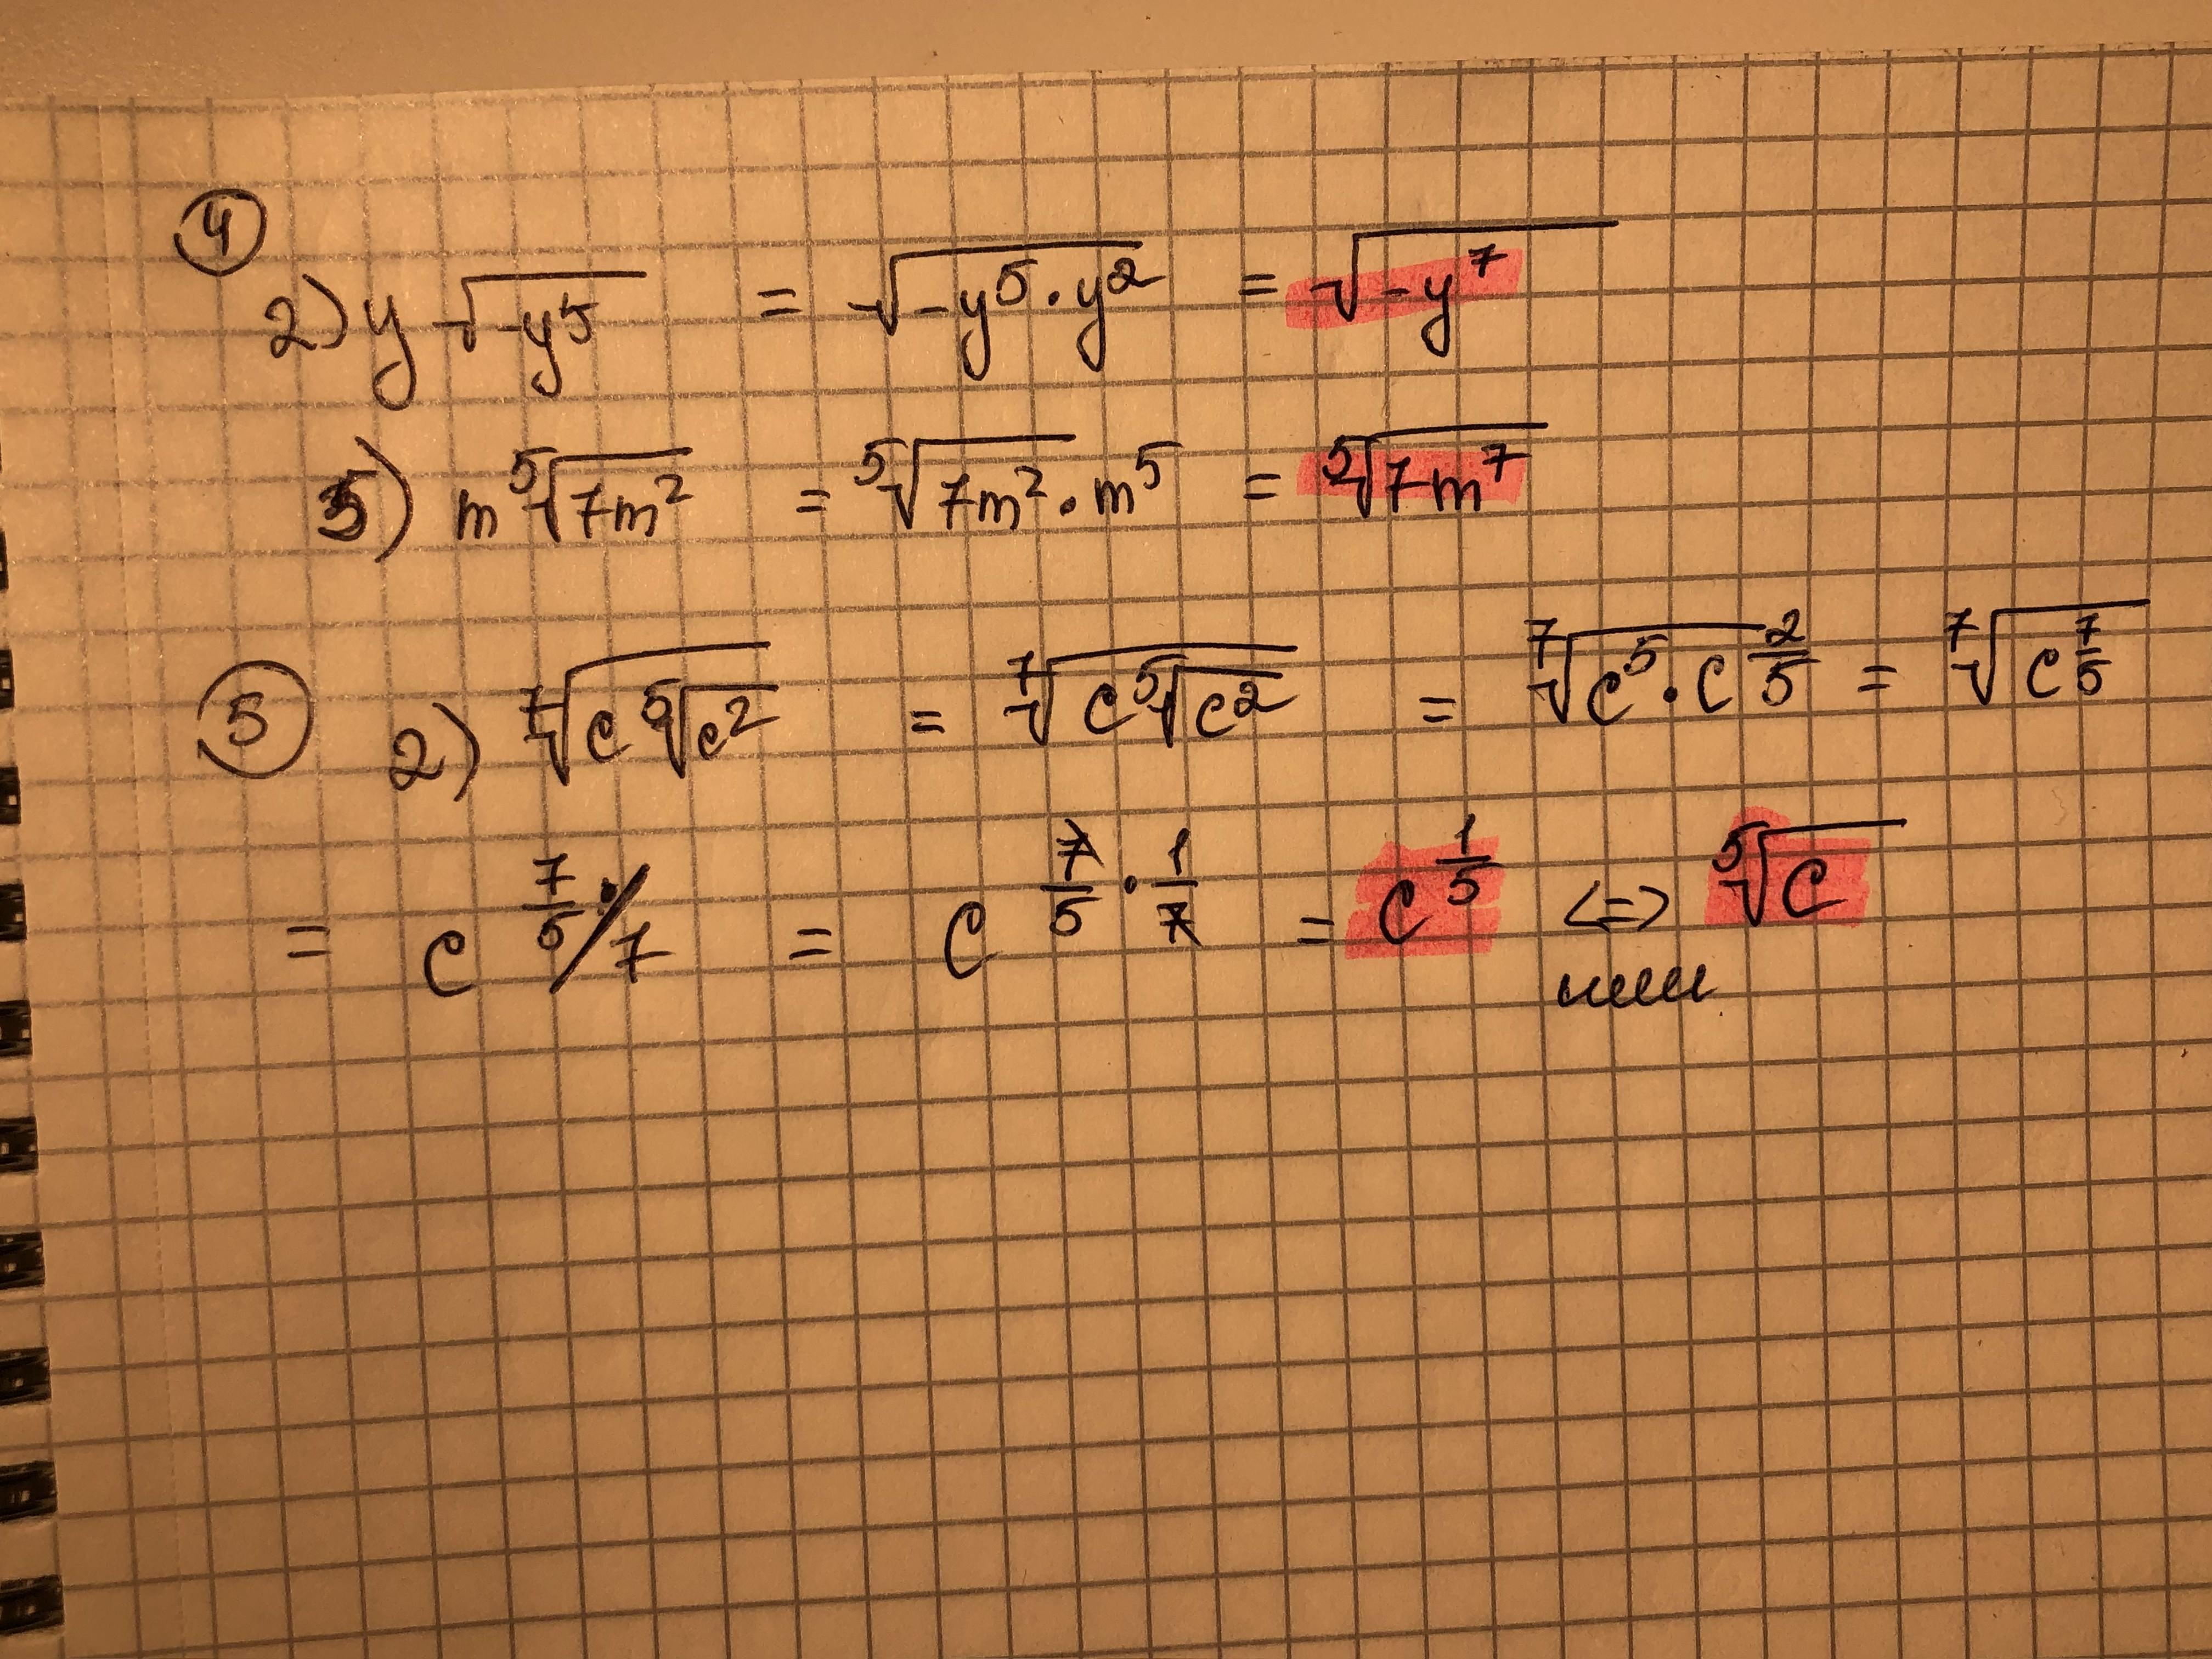 ④
2) y √(-y⁵) = √(-y⁵·y²) = √(-y⁷)
5) m ⁵√(7m²) = ⁵√(7m²·m⁵) = ⁵√(7m⁷)
⑤ 2) ⁷√(c ⁵√(c²)) = ⁷√(c ⁵√(c²)) = ⁷√(c⁵·c^(2/5)) = ⁷√(c^(7/5))
= c^(7/5 : / 7) = c^(7/5 · 1/7) = c^(1/5) <=> ⁵√c
или